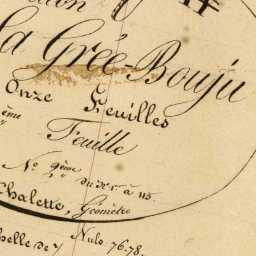 ction
la Grée-Bouju
Onze Feuilles
ème
Feuille
N° 9ème du N° 1 à 115.
Chalette, Géomètre
helle de
Nulo 76.78.